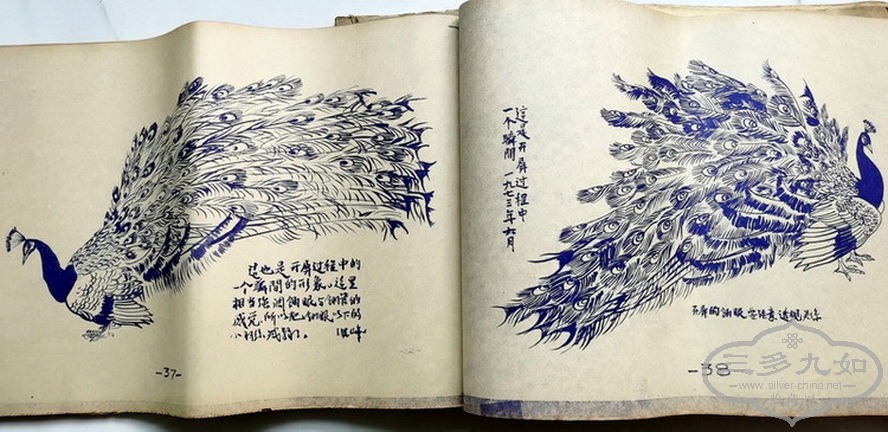 这也是开屏过程中的
一个瞬间的形象。这里
相当强调翎眼与翎管的
感觉，所以把翎眼以下的
小羽
-37-
这是开屏过程中
一个瞬间 一九七三年六月
开屏的翎眼 要注意透视关系
-38-
三多九如
www.silver-china.net